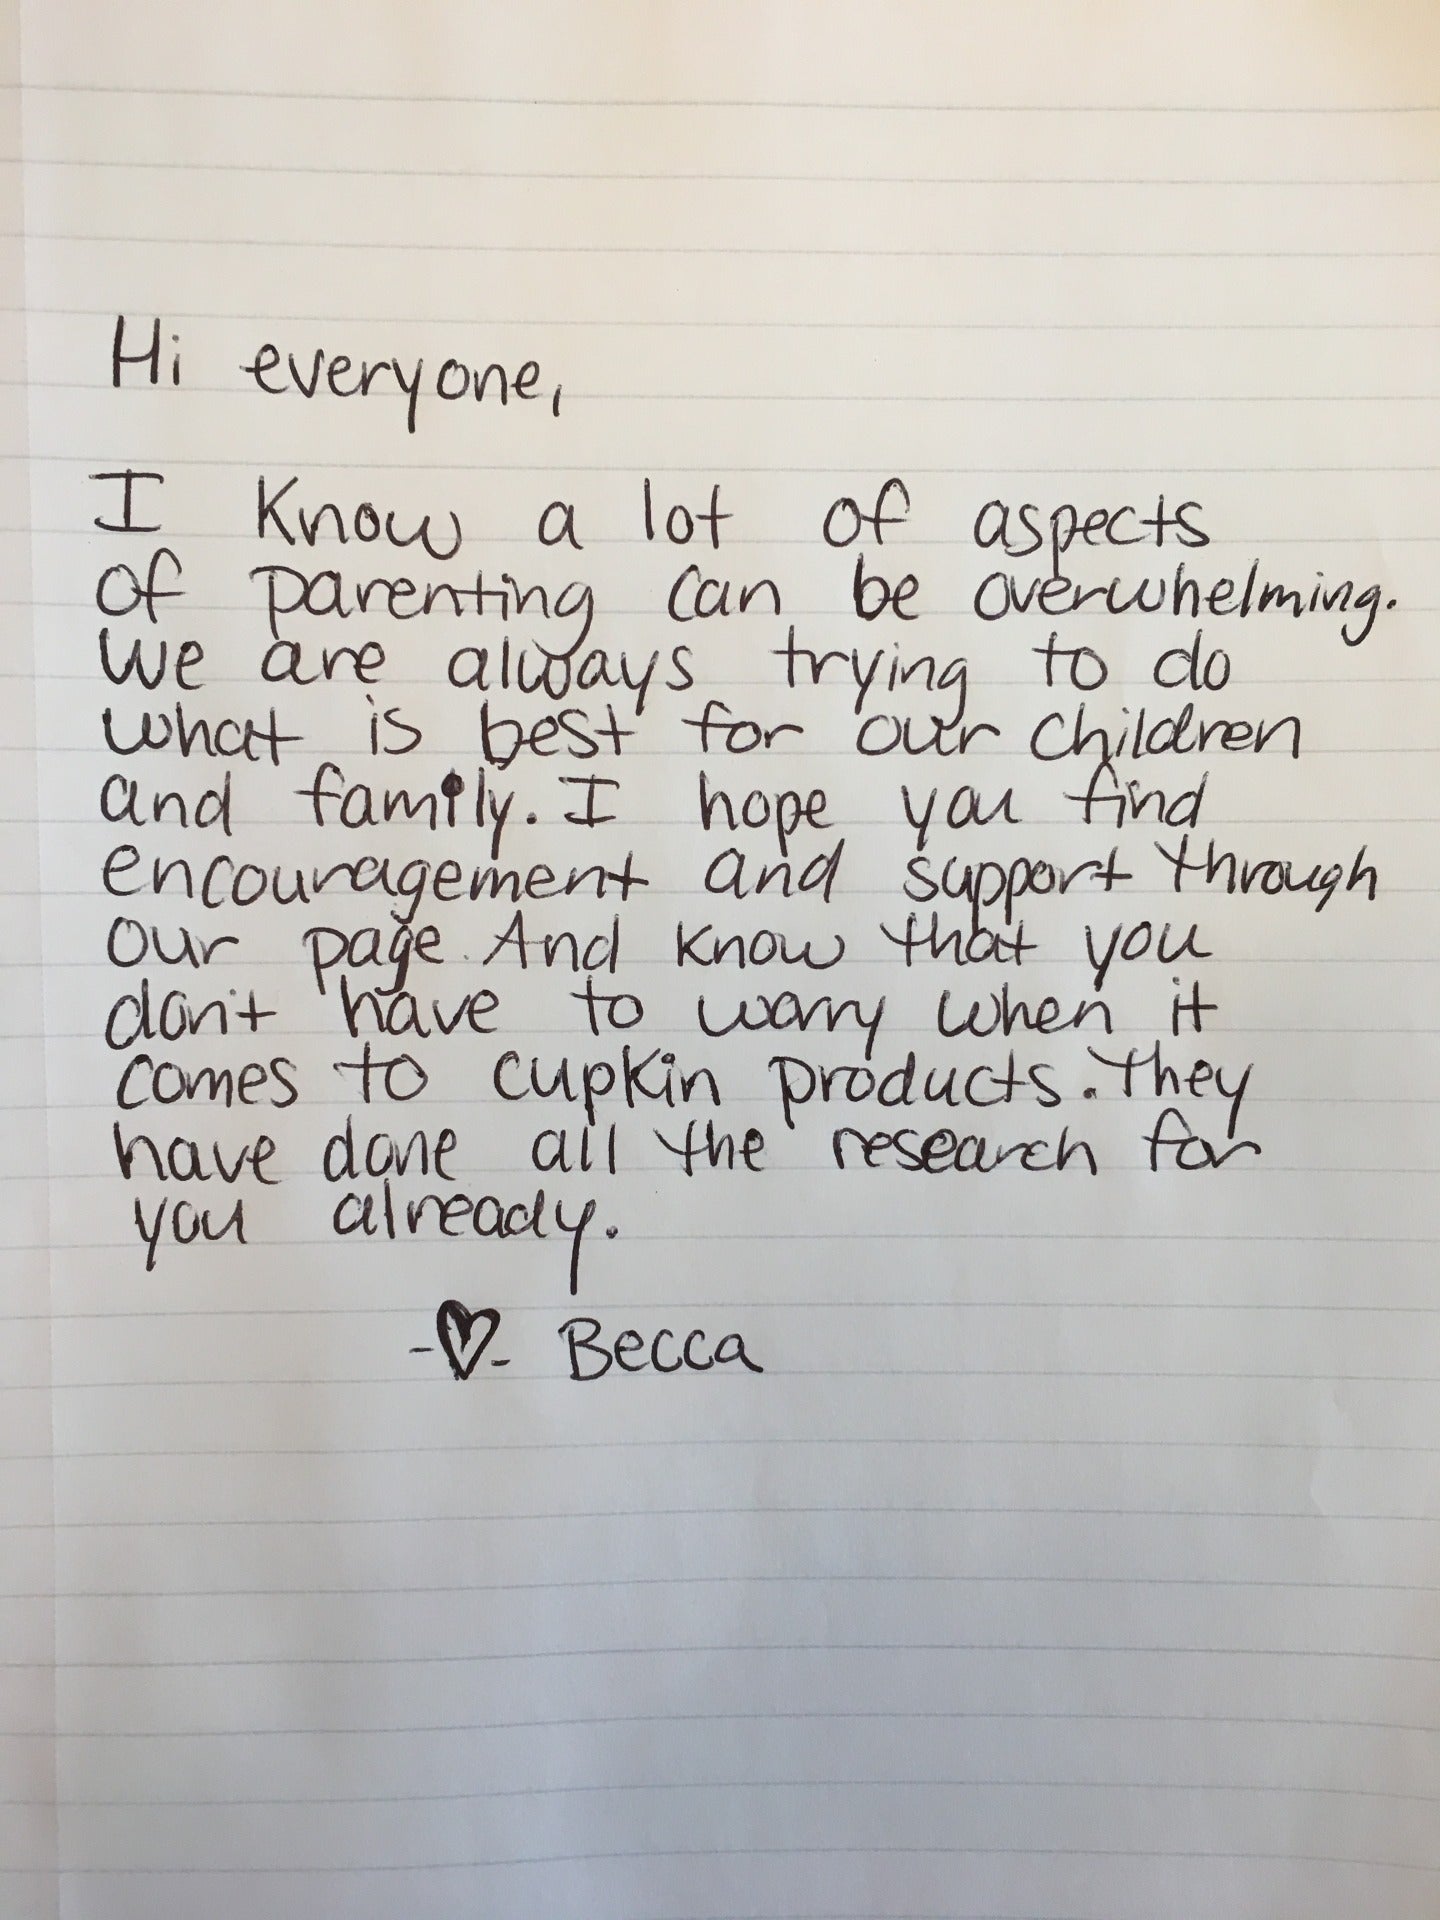 Hi everyone,
I know a lot of aspects
of parenting can be overwhelming.
We are always trying to do
what is best for our children
and family. I hope you find
encouragement and support through
our page. And know that you
don't have to worry when it
comes to cupkin products. They
have done all the research for
you already.
-♡- Becca